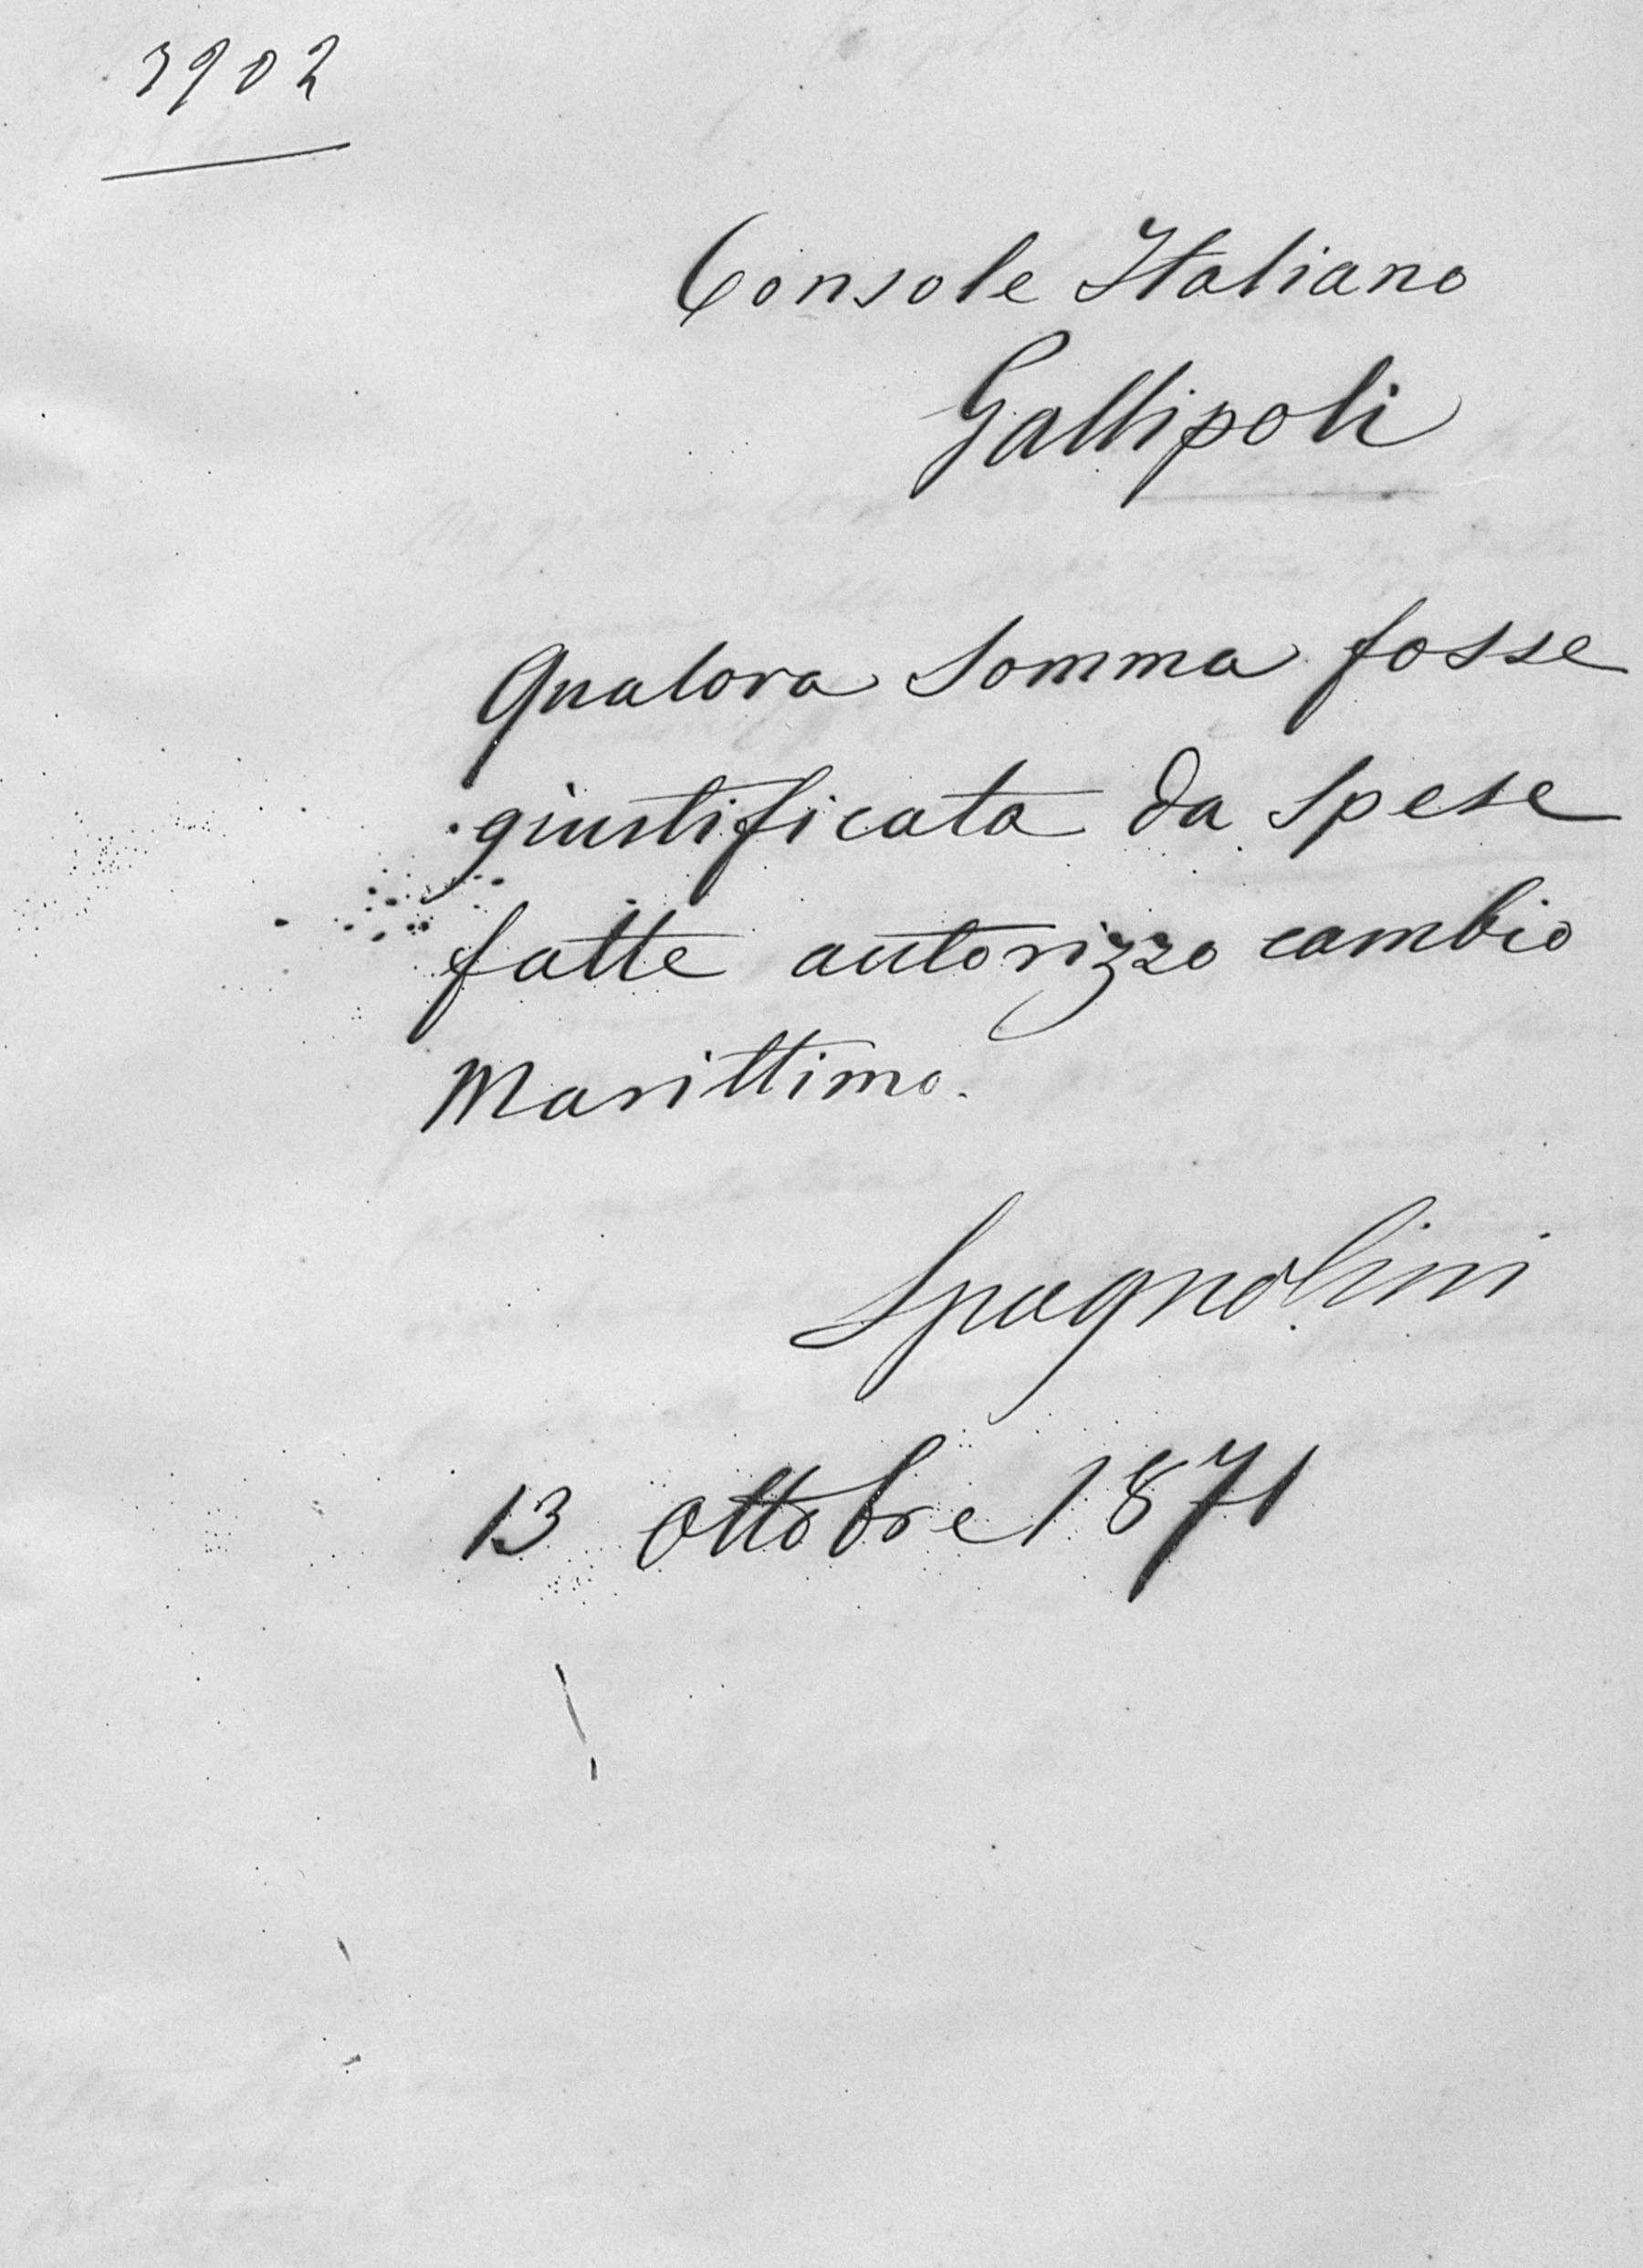 3902
Console Italiano
Gallipoli
Qualora somma fosse
giustificata da spese
fatte autorizzo cambio
Marittimo.
Spagnolini
13 ottobre 1871